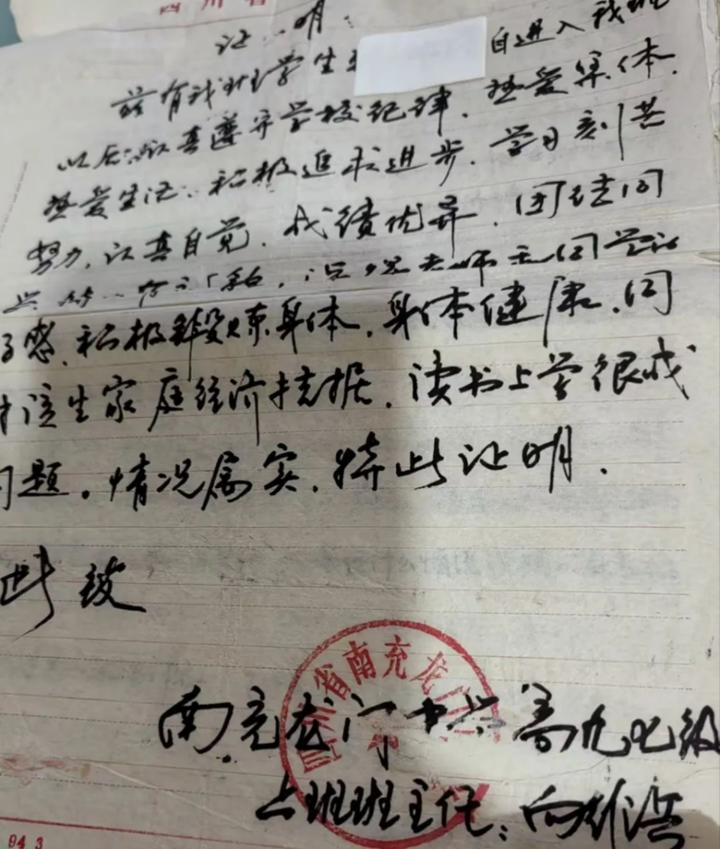 四川省
证 明
兹有我班学生 自进入我班
以后,认真遵守学校纪律.热爱集体.
热爱生活.积极追求进步.学习刻苦
努力,认真自觉.成绩优异.团结同
感.积极锻炼身体.身体健康.同
该生家庭经济拮据.读书上学很成
问题。情况属实.特此证明.
此致
四川省南充龙门
南充龙门中学高九七级
班班主任:向
94 3